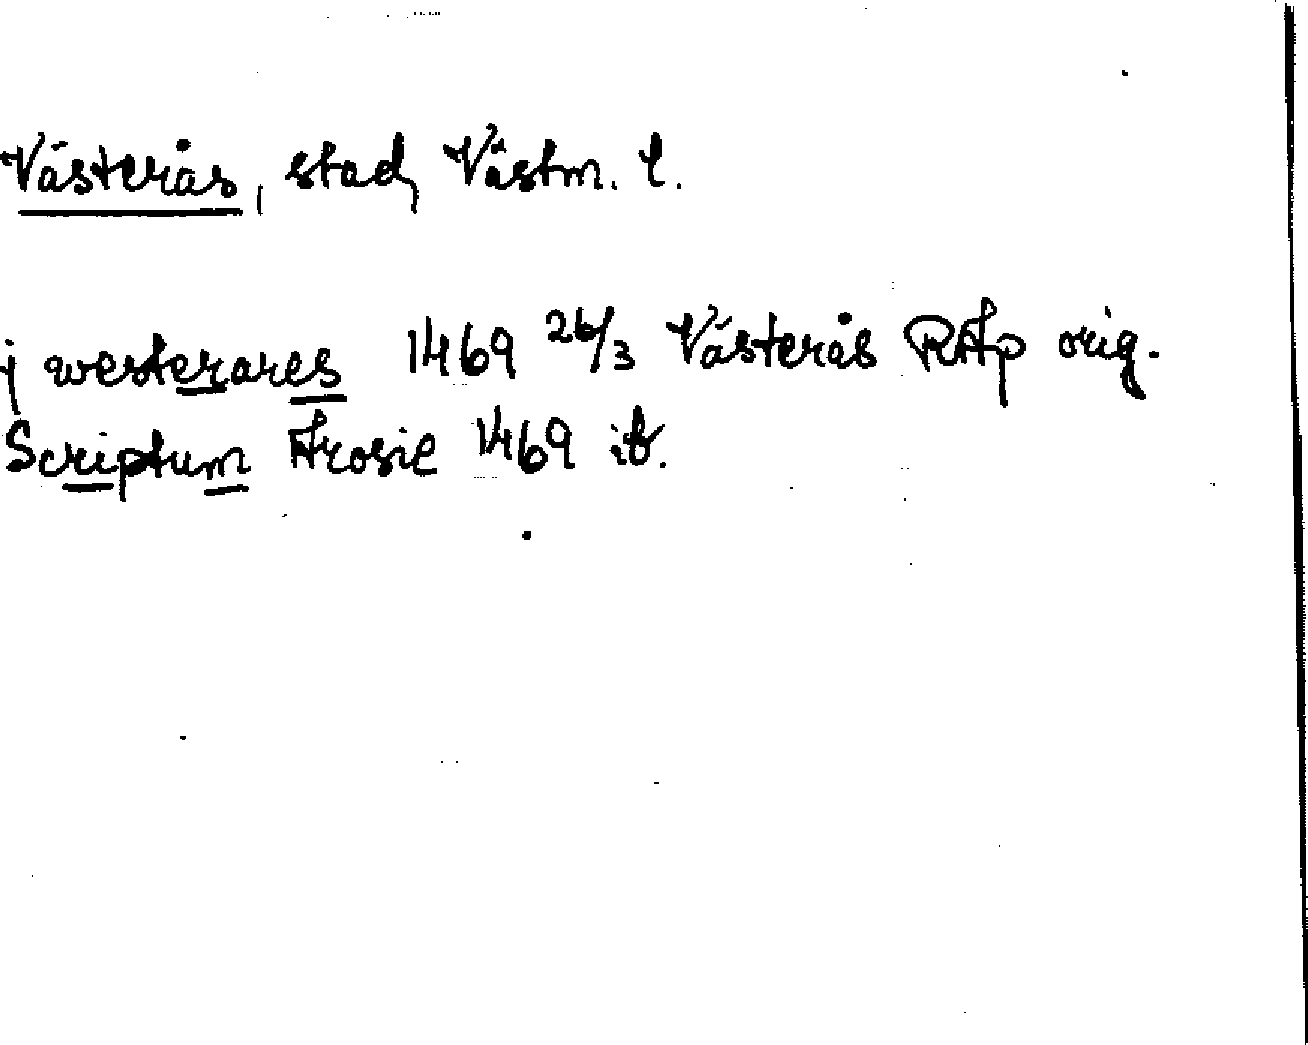 Västerås, stad, Västm. l.
j westerares 1469 26/3 Västerås RAp orig.
Scriptum Arosie 1469 ib.